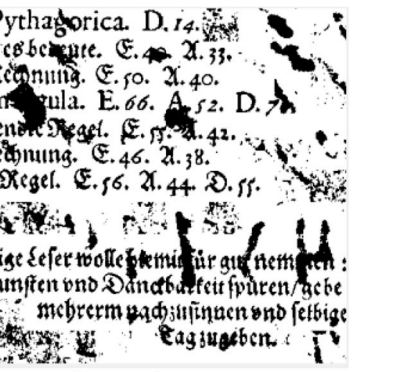 Pythagorica. D. 14.
es bedeute. E. 40. A. 33.
Rechnung. E. 50. A. 40.
gula. E. 66. A. 52. D. 7
Regel. E. 55. A. 42.
chnung. E. 46. A. 38.
Regel. E. 56. A. 44. D. 55.
ige Leser wolle hiemit für gut nemmen :
unsten vnd Danckbarkeit spüren/gebe
mehrerm nachzusinnen vnd selbige
Tag zugeben.